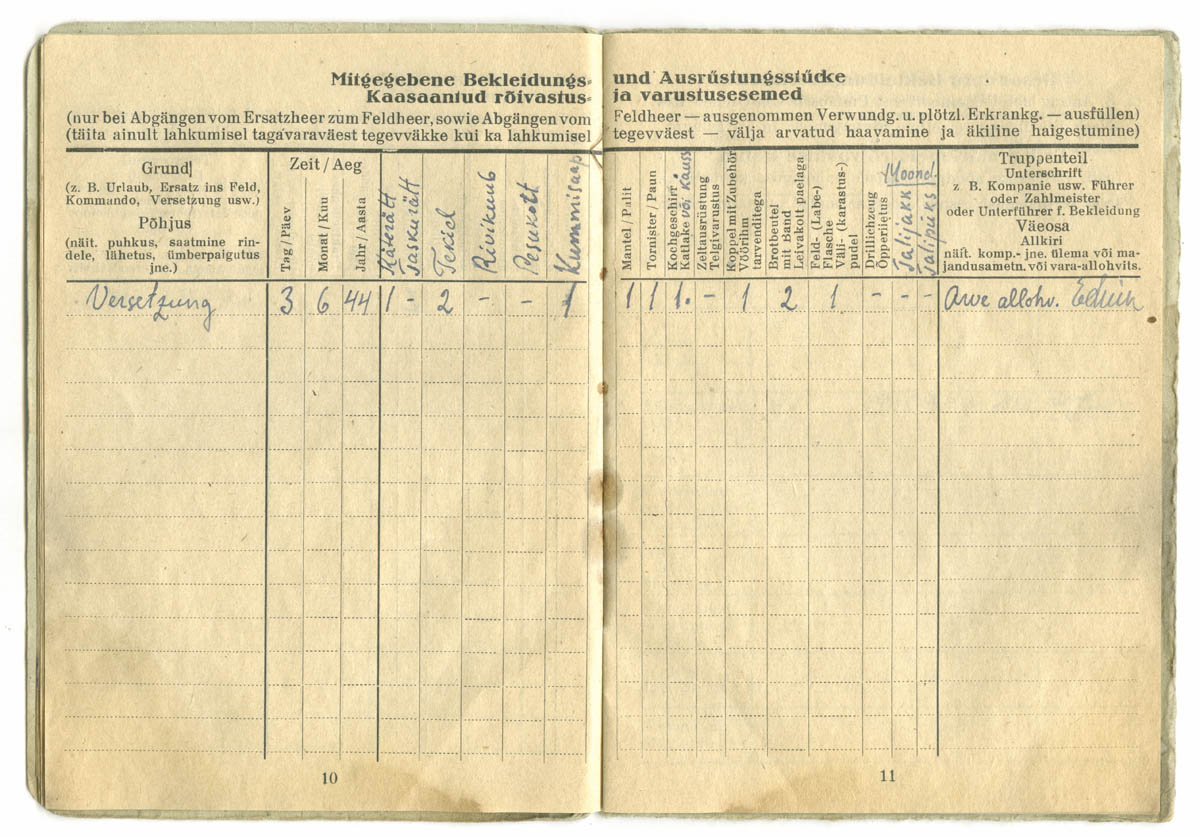 Mitgegebene Bekleidungs- und Ausrüstungsstücke
Kaasaantud rõivastus- ja varustusesemed
(nur bei Abgängen vom Ersatzheer zum Feldheer, sowie Abgängen vom Feldheer — ausgenommen Verwundg. u. plötzl. Erkrankg. — ausfüllen)
(täita ainult lahkumisel tagavaraväest tegevväkke kui ka lahkumisel tegevväest — välja arvatud haavamine ja äkiline haigestumine)
Grund
(z. B. Urlaub, Ersatz ins Feld,
Kommando, Versetzung usw.)
Põhjus
(näit. puhkus, saatmine rin-
dele, lähetus, ümberpaigutus
jne.)
Zeit / Aeg
Tag / Päev
Monat / Kuu
Jahr / Aasta
Käterätt
Taskurätt
Tekid
Riivikuub
Pesukott
Kummisaap
Mantel / Palit
Tornister / Paun
Kochgeschirr
Katlake või kauss
Zeltausrüstung
Telgivarustus
Koppel mit Zubehör
Vöörihm
tarvenditega
Brotbeutel
mit Band
Leivakott paelaga
Feld- (Labe-)
Flasche
Väli- (karastus-)
pudel
Drillichzeug
Õpperiietus
Moond.
Talijakk
Talipüks
Truppenteil
Unterschrift
z B. Kompanie usw. Führer
oder Zahlmeister
oder Unterführer f. Bekleidung
Väeosa
Allkiri
näit. komp.- jne. ülema või ma-
jandusametn. või vara-allohvits.
Versetzung 3 6 44 1 - 2 - - 1 1 1 1. - 1 2 1 - - - Arve allohv.
10
11